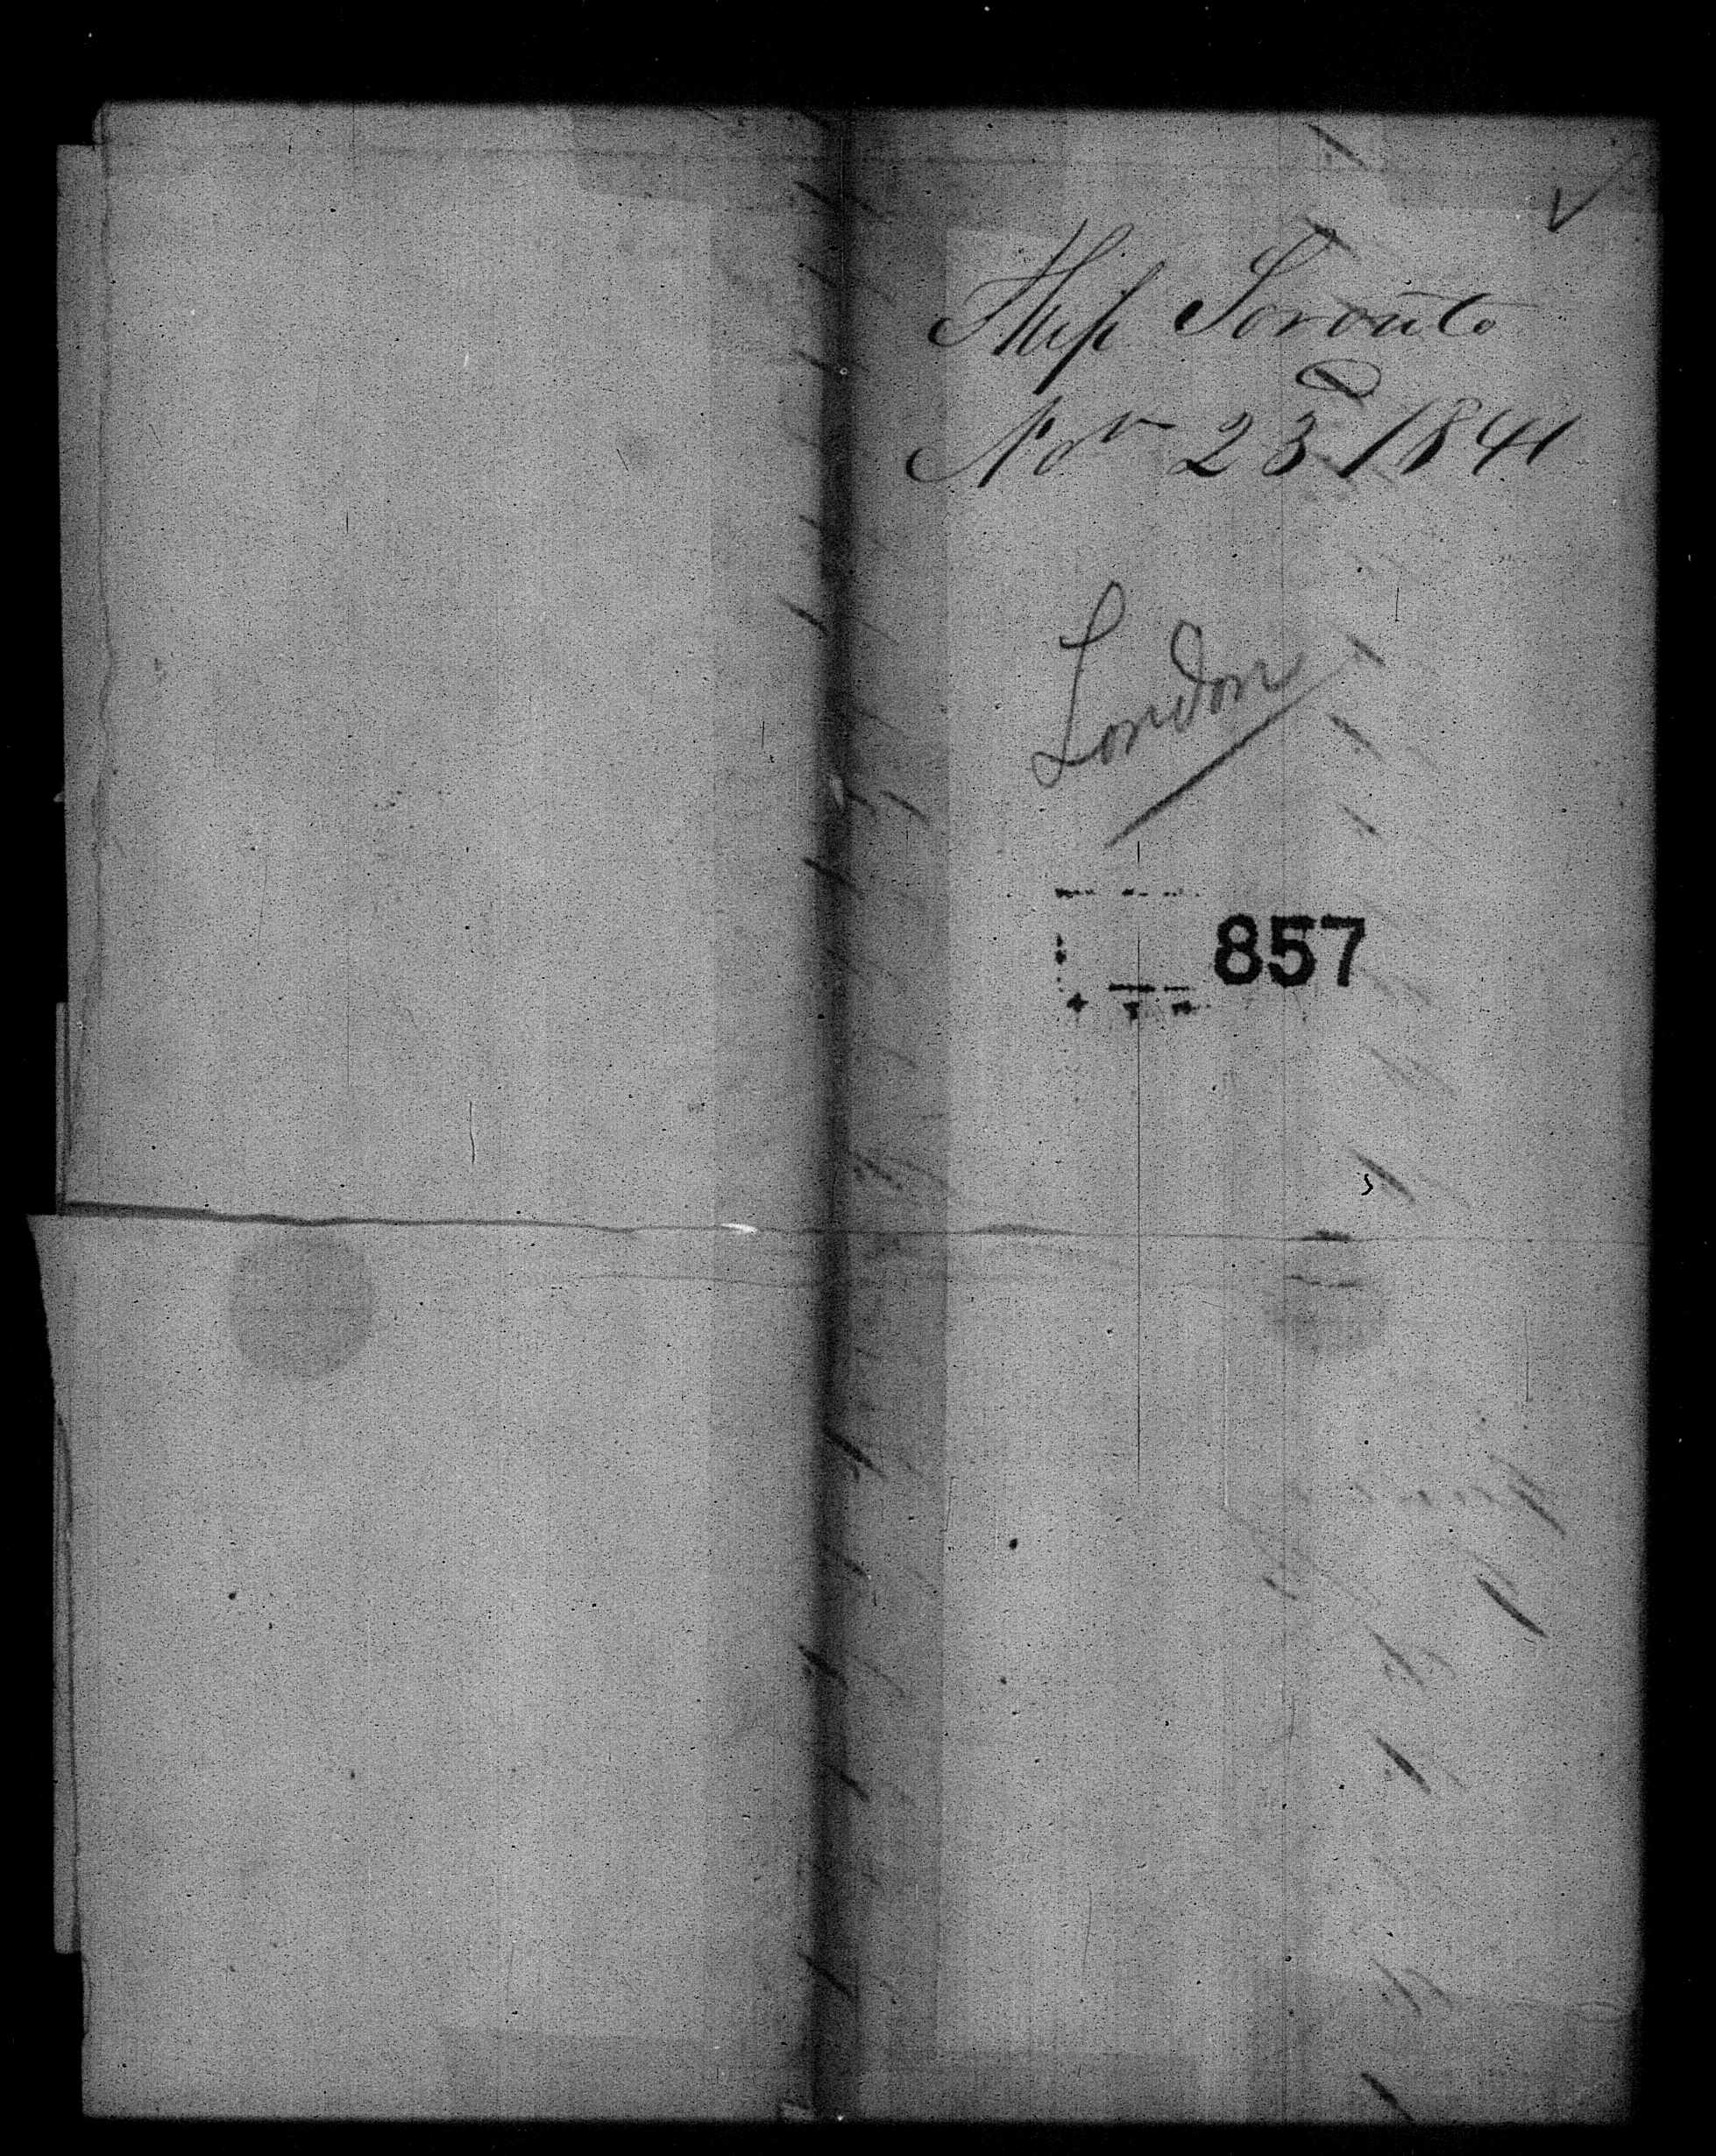 Ship Toronto
Nov 23 1841
London
857